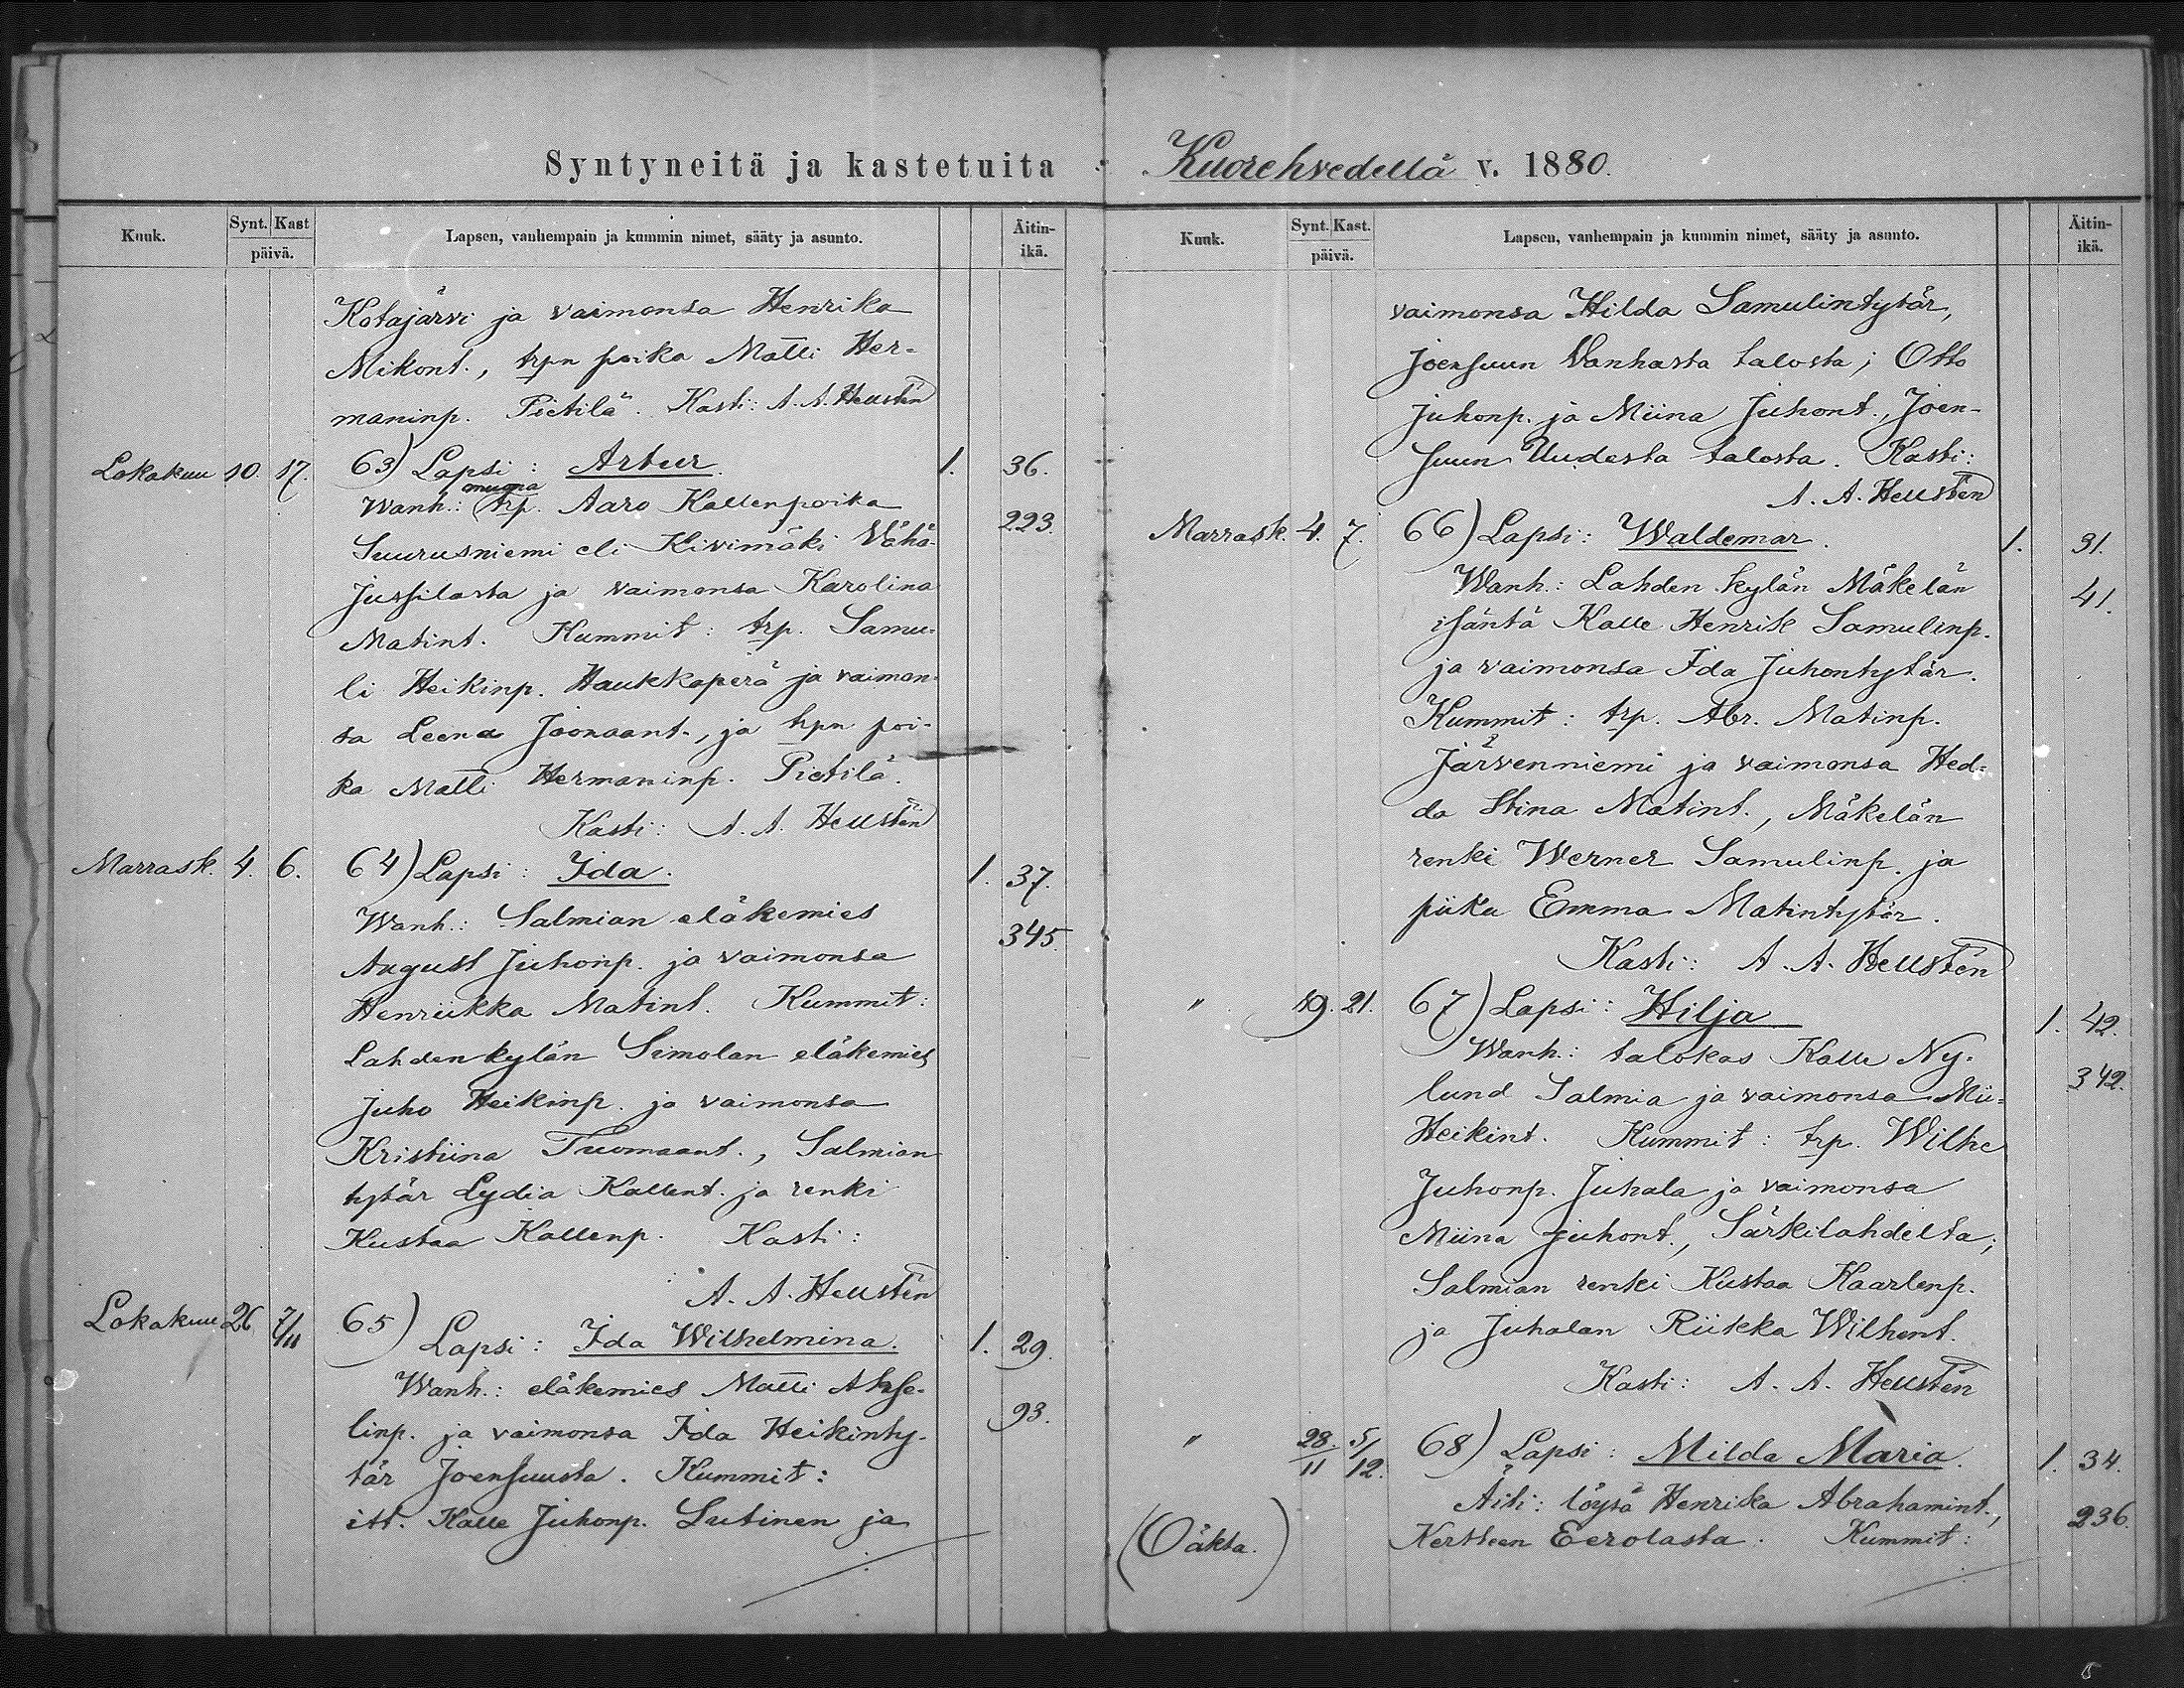 Syntyneitä ja kastetuita
Kuuk.
Synt. Kast
päivä.
Lapsen, vanhempain ja kummin nimet, sääty ja asunto.
Äitin-
ikä.
Kotajärvi ja vaimonsa Henrika
Mikont., trpn poika Matti Her-
maninp. Pietilä. Kasti: A. A. Hellstén
Lokakuu 10. 17. 63) Lapsi: Artur. 1. 36.
muona
Wanh.: trp. Aaro Kallenpoika 223.
Suurusniemi eli Kivimäki Vähä-
Jussilasta ja vaimonsa Karolina
Matint. Kummit: trp. Samu-
li Heikinp. Haukkaperä ja vaimon-
sa Leena Joonaant., ja trpn poi-
ka Matti Hermaninp. Pietilä.
Kasti: A. A. Hellstén
Marrask. 4. 6. 64) Lapsi: Ida. 1. 37.
Wanh.: Salmian eläkemies 345.
August Juhonp. ja vaimonsa
Henriikka Matint. Kummit:
Lahdenkylän Simolan eläkemies
Juho Heikinp. ja vaimonsa
Kristiina Tuomaant., Salmian
tytär Lydia Kallent. ja renki
Kustaa Kallenp. Kasti:
A. A. Hellstén
Lokakuu 26 7/11 65) Lapsi: Ida Wilhelmina. 1. 29.
Wanh.: eläkemies Matti Akse-
93.
linp. ja vaimonsa Ida Heikinty-
tär Joensuusta. Kummit:
itt. Kalle Juhonp. Lutinen ja
Kuorehvedellä v. 1880.
Kuuk.
Synt. Kast.
päivä.
Lapsen, vanhempain ja kummin nimet, sääty ja asunto.
Äitin-
ikä.
vaimonsa Hilda Samulintytär,
Joensuun Vanhasta talosta; Otto
Juhonp. ja Miina Juhont., Joen-
suun Uudesta talosta. Kasti:
A. A. Hellstén
Marrask. 4. 7. 66) Lapsi: Waldemar. 1. 31.
Wanh.: Lahden kylän Mäkelän 41.
isäntä Kalle Henrik Samulinp.
ja vaimonsa Ida Juhontytär.
Kummit: trp. Abr. Matinp.
Järvenniemi ja vaimonsa Hed-
da Stina Matint., Mäkelän
renki Werner Samulinp. ja
piika Emma Matintytär.
Kasti: A. A. Hellstén
" 19. 21. 67) Lapsi: Hilja 1. 42.
Wanh.: talokas Kalle Ny- 342.
lund Salmia ja vaimonsa Mii-
Heikint. Kummit: trp. Wilhe
Juhonp. Juhala ja vaimonsa
Miina Juhont., Särkilahdelta;
Salmian renki Kustaa Kaarlenp.
ja Juhalan Riikka Wilhent.
Kasti: A. A. Hellstén
" 28./11 5/12. 68) Lapsi: Milda Maria. 1. 34.
Äiti: löysä Henrika Abrahamint., 236.
(Oäkta.) Kertteen Eerolasta. Kummit: